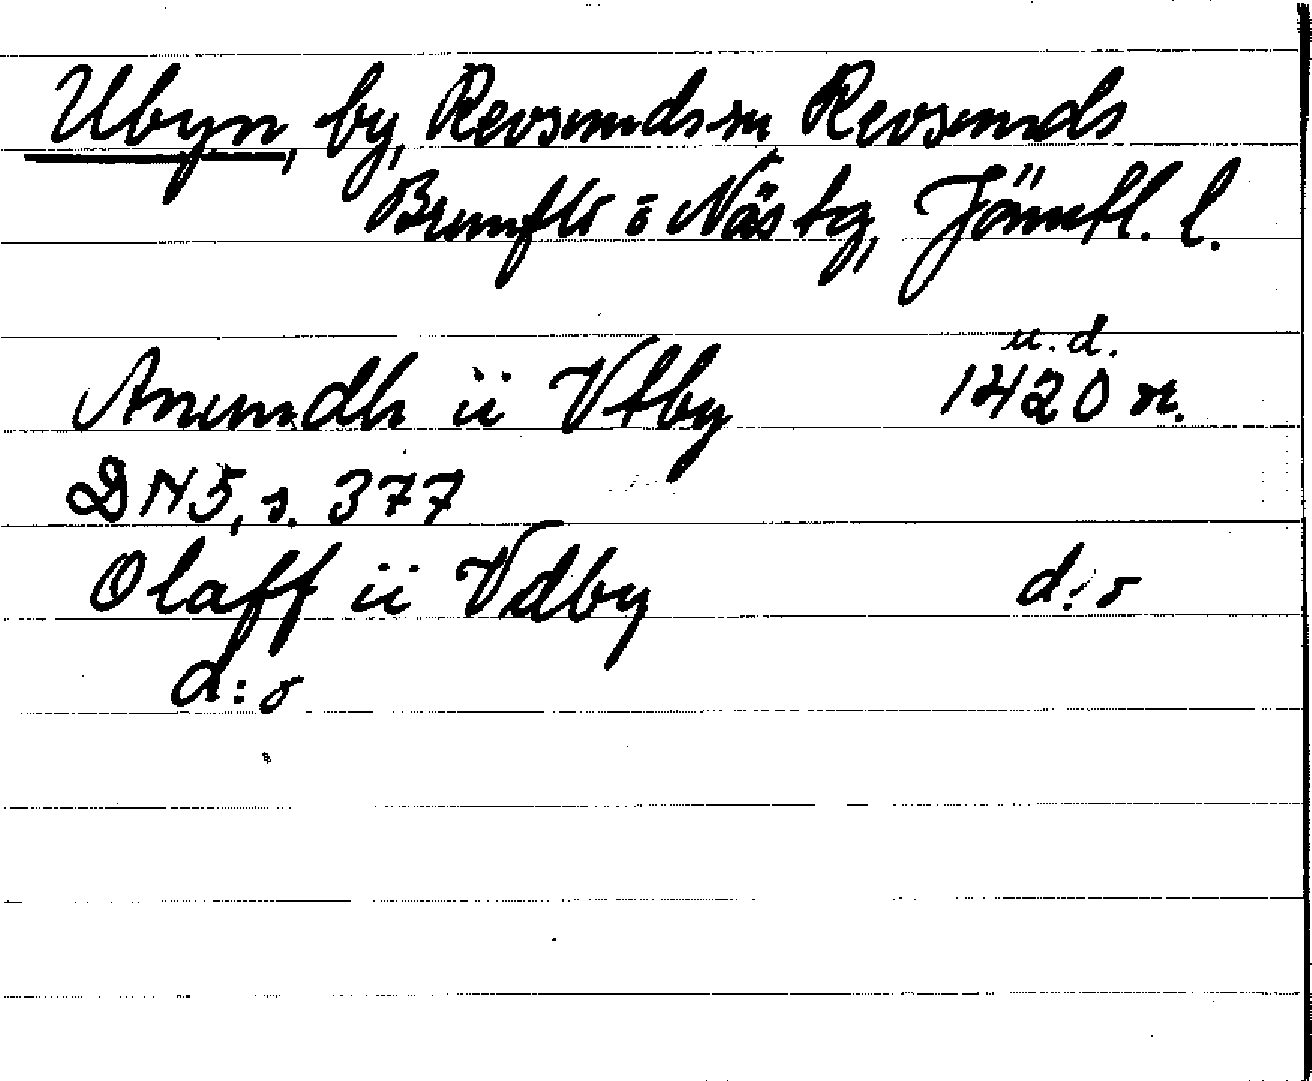 Ubyn, by, Revsunds sn, Revsunds
Brunflo o Näs tg, Jämtl. l.
u.d.
Anundh ii Vtby 1420 n.
DN5, s. 377
Olaff ii Vdby d:o
d:o